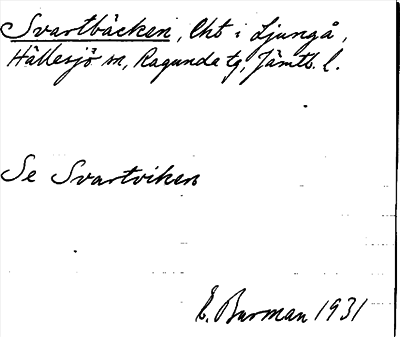 Svartbäcken, Lht i Ljungå,
Hällesjö sn, Ragunda tg, Jämtl. l.
Se Svartviken
E. Burman 1931